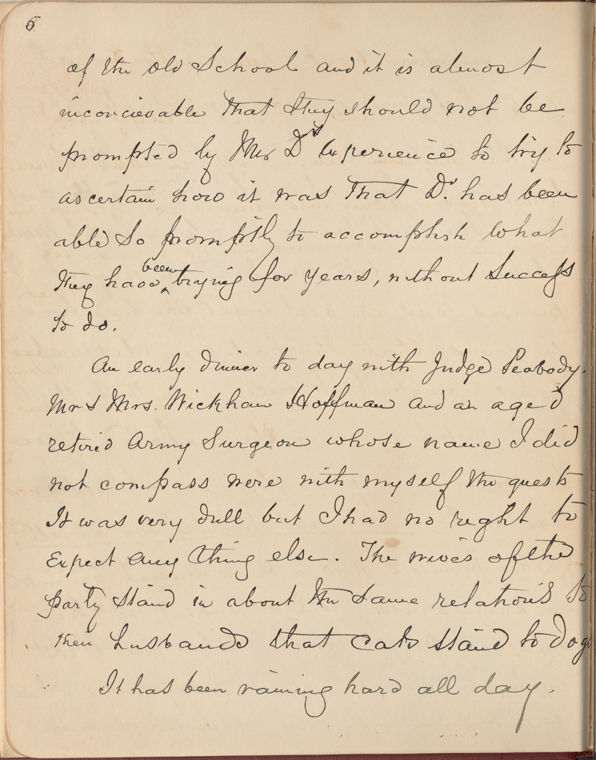 6
of the old School and it is almost
inconcievable that they should not be
prompted by Mr D's experience to try to
ascertain how it was that Dr. has been
able so promptly to accomplish what
they have been trying for years, without success
to do.
An early dinner to day with Judge Peabody.
Mr & Mrs. Wickham Hoffman and an aged
retired Army Surgeon whose name I did
not compass were with myself the guests
It was very dull but I had no right to
expect any thing else. The wives of the
party stand in about the same relations to
their husbands that cats stand to dogs
It has been raining hard all day.